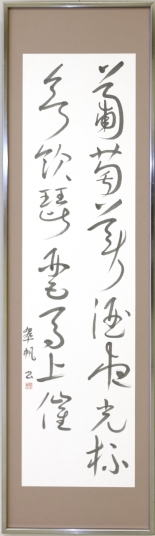 葡萄美酒夜光杯
欲飲琵琶馬上催